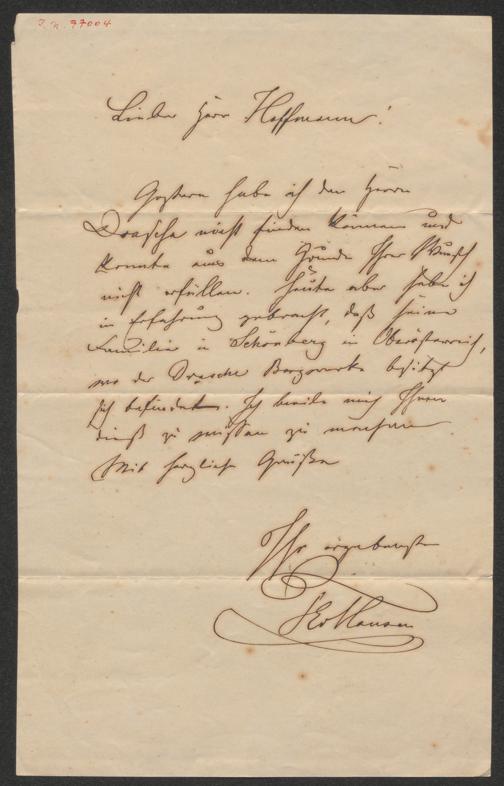 I. N. 97004
Lieber Herr Hoffmann!
Gestern habe ich den Herrn
Drasche nicht finden können und
konnte aus dem Grunde Ihren Wunsch
nicht erfüllen. Heute aber habe ich
in Erfahrung gebracht, daß seine
Familie in Schönberg in Oberösterreich,
wo der Drasche Bergwerke besitzt
sich befindet. Ich beeile mich Ihnen
dieß zu wissen zu machen
Mit herzliche Grüßen
Ihr ergebenster
Hansen